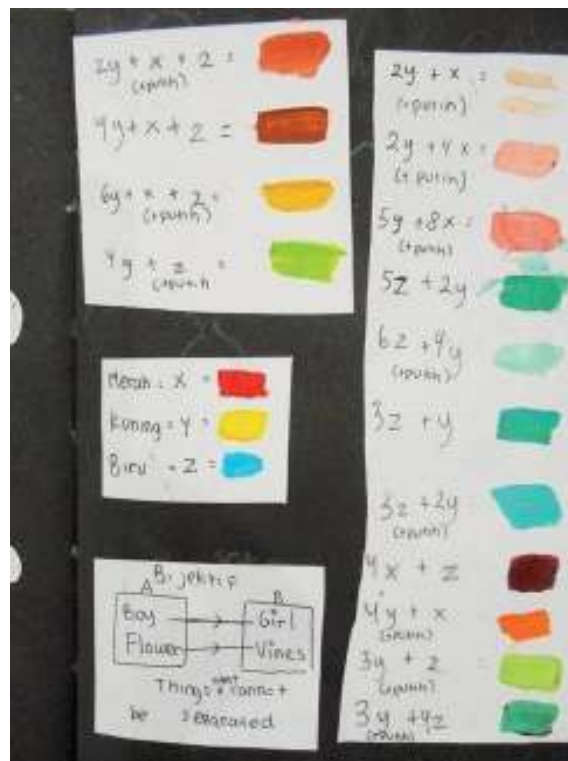 2y + x + 2 =
(+putih)
4y + x + z =
6y + x + z =
(+putih)
4y + z =
(+putih)
Merah = X =
Kuning = Y =
Biru = Z =
Bijektif
A B
Boy Girl
Flower Vines
Things cannot
be separated
2y + x =
(+putih)
2y + 4x =
(+putih)
5y + 8x =
(+putih)
5z + 2y
6z + 4y
(+putih)
3z + y
3z + 2y
(+putih)
4x + z
4y + x
(+putih)
3y + z
(+putih)
3y + 4z
(+putih)